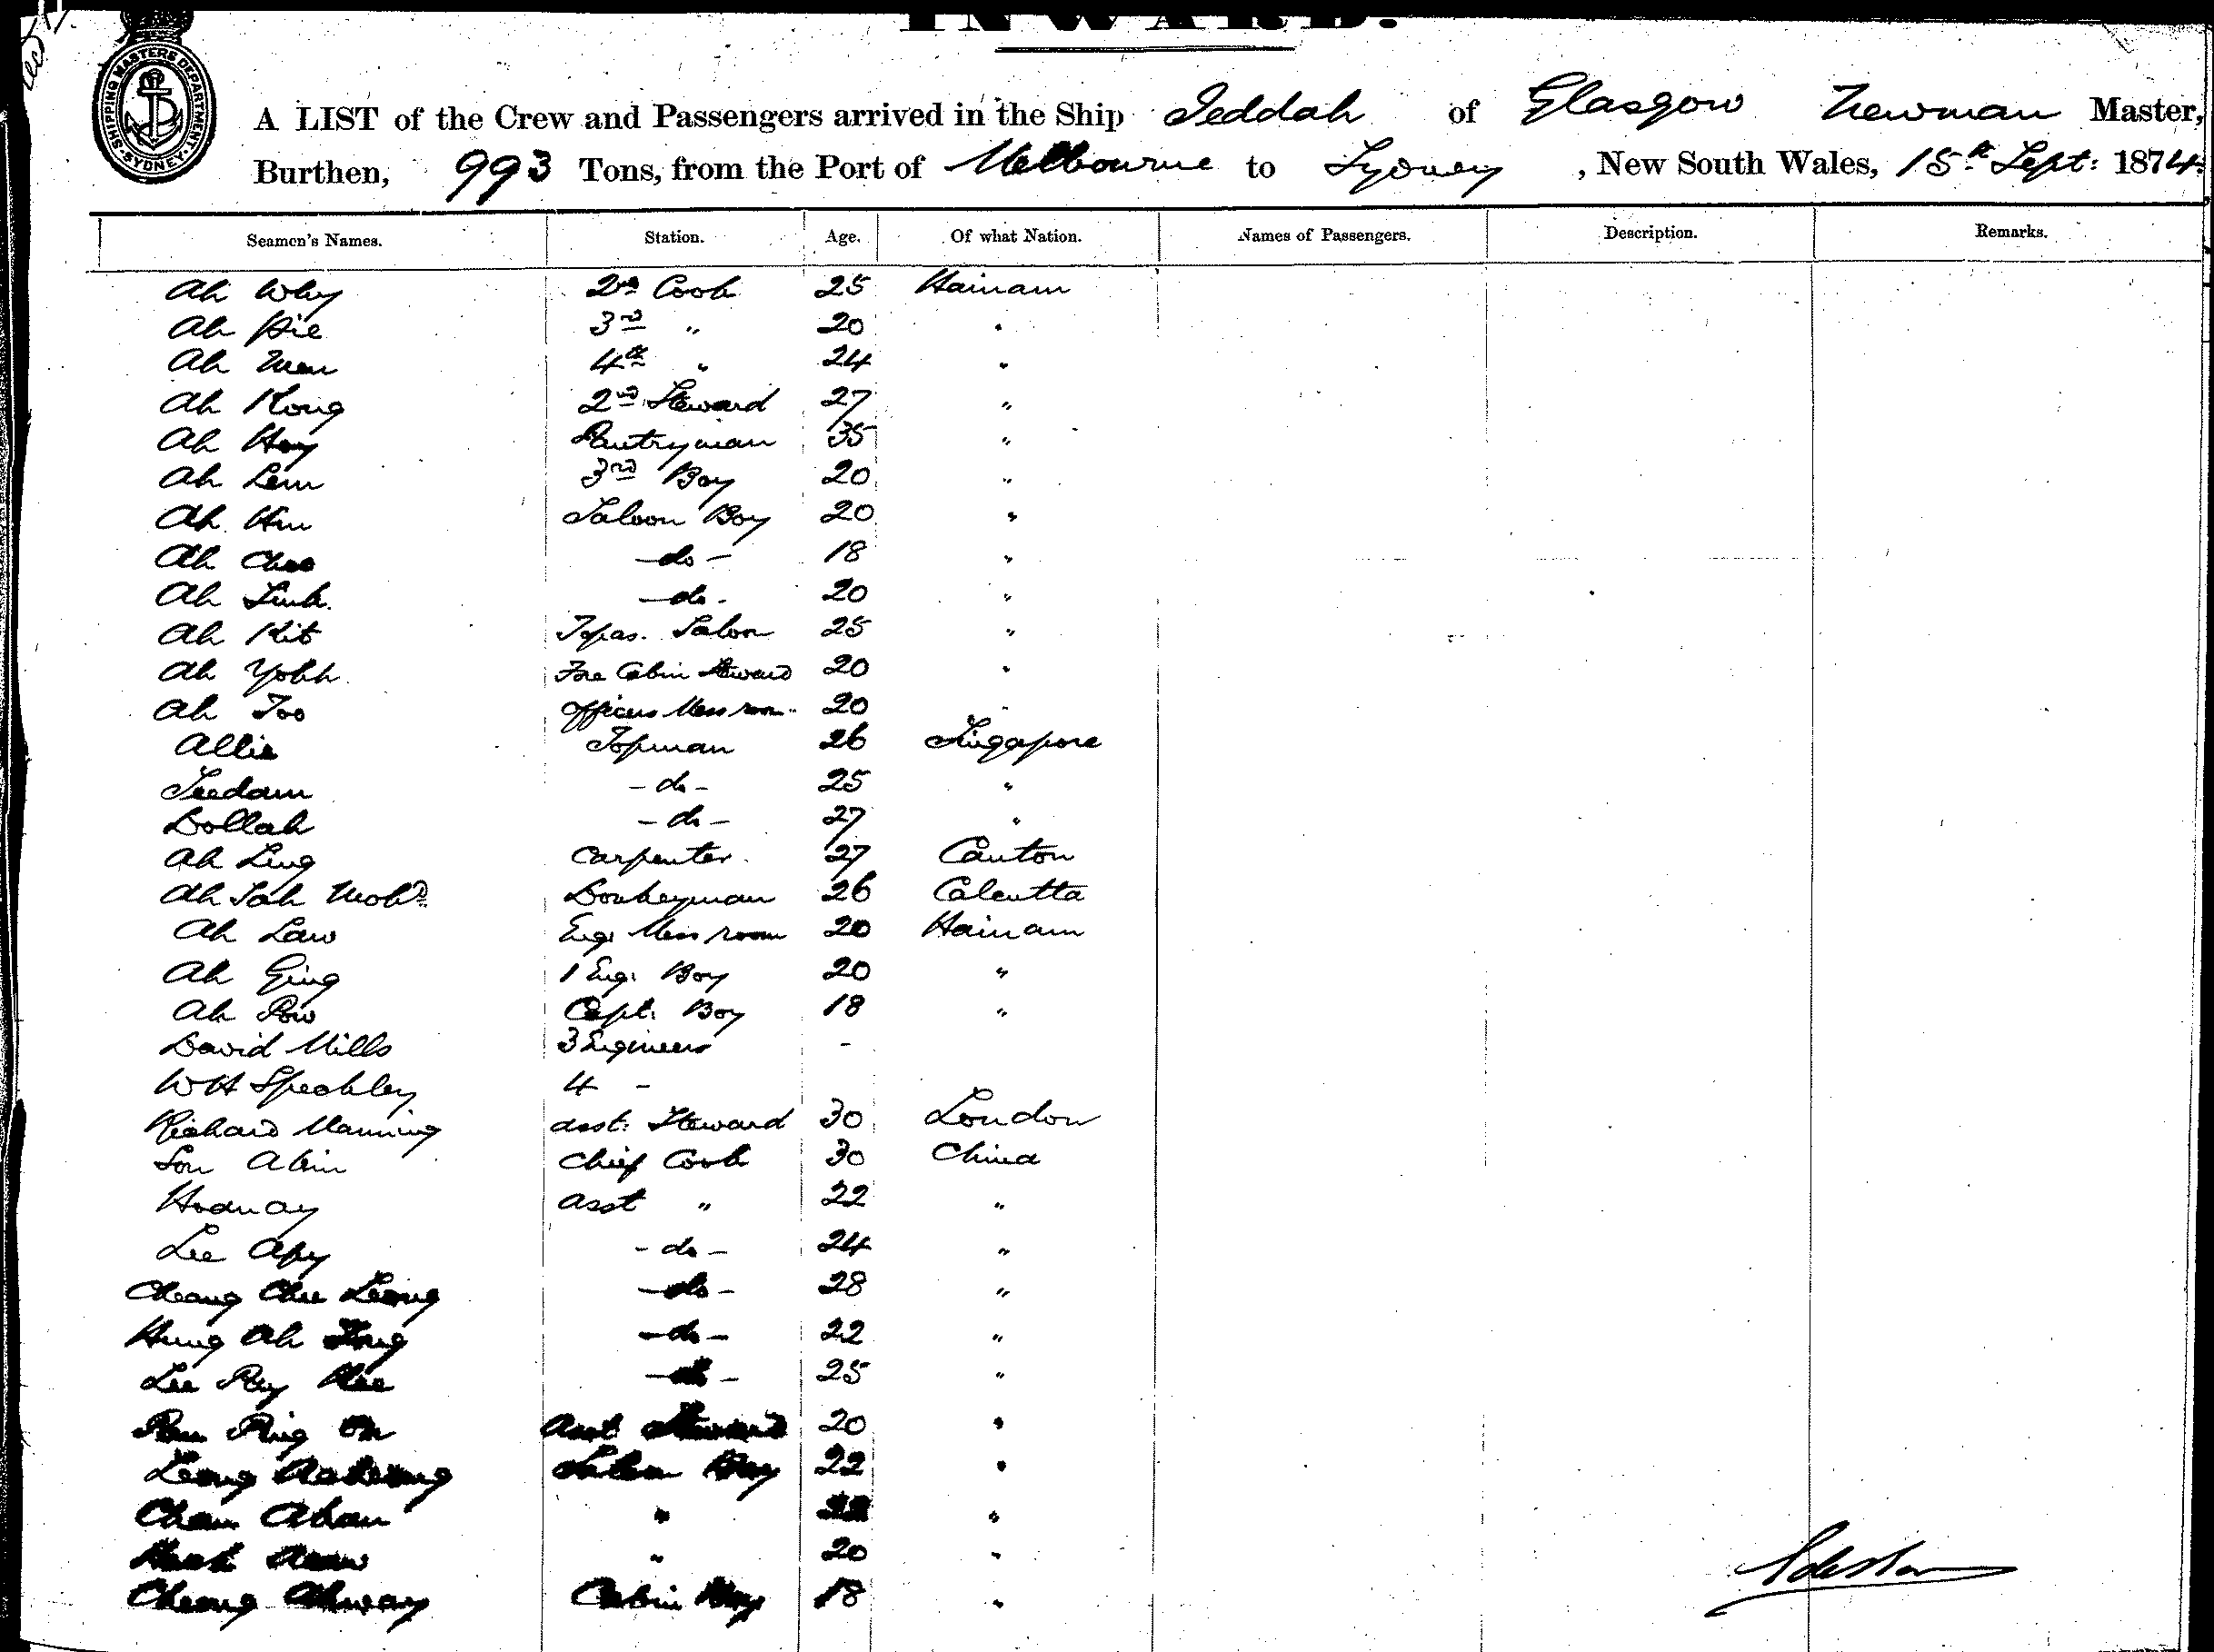 INWARD.
SHIPPING MASTERS DEPARTMENT SYDNEY
A LIST of the Crew and Passengers arrived in the Ship Jeddah of Glasgow Newman Master,
Burthen, 993 Tons, from the Port of Melbourne to Sydney, New South Wales, 15th Sept: 1874
Seamen's Names. Station. Age. Of what Nation. Names of Passengers. Description. Remarks.
Ah Why 2nd Cook 25 Hainam
Ah Hie 3rd " 20 "
Ah Men 4th " 24 "
Ah Kong 2nd Steward 27 "
Ah Hoy Pantryman 35 "
Ah Lem 3rd Boy 20 "
Ah Hm Saloon Boy 20 "
Ah Choo -do- 18 "
Ah -do- 20 "
Ah Kit Topas. Saloon 25 "
Ah Yohh Fore Cabin Steward 20 "
Ah Too Officers Mess room 20 "
Allie Topman 26 Singapore
Seedam -do- 25 "
Dollah -do- 27 "
Ah Ling Carpenter 27 Canton
Ah Sah Mohd Donkeyman 26 Calcutta
Ah Law Eng: Mess room 20 Hainam
Ah Ging 1 Eng: Boy 20 "
Ah Pow Capt: Boy 18 "
David Mills 3 Engineers -
WH Speakley 4 -
Richard Manning Asst: Steward 30 London
Son Akin Chief Cook 30 China
Hodnay Asst " 22 "
Lee Apy -do- 24 "
Cheang Chu Leong -do- 28 "
Hung Ah -do- 22 "
Lee Pay Hee -do- 25 "
Ping On Asst Steward 20 "
Leong Saloon Boy 22 "
Cham Ahan " 22 "
" 20 "
Cheong Ahway Cabin Boy 18 "